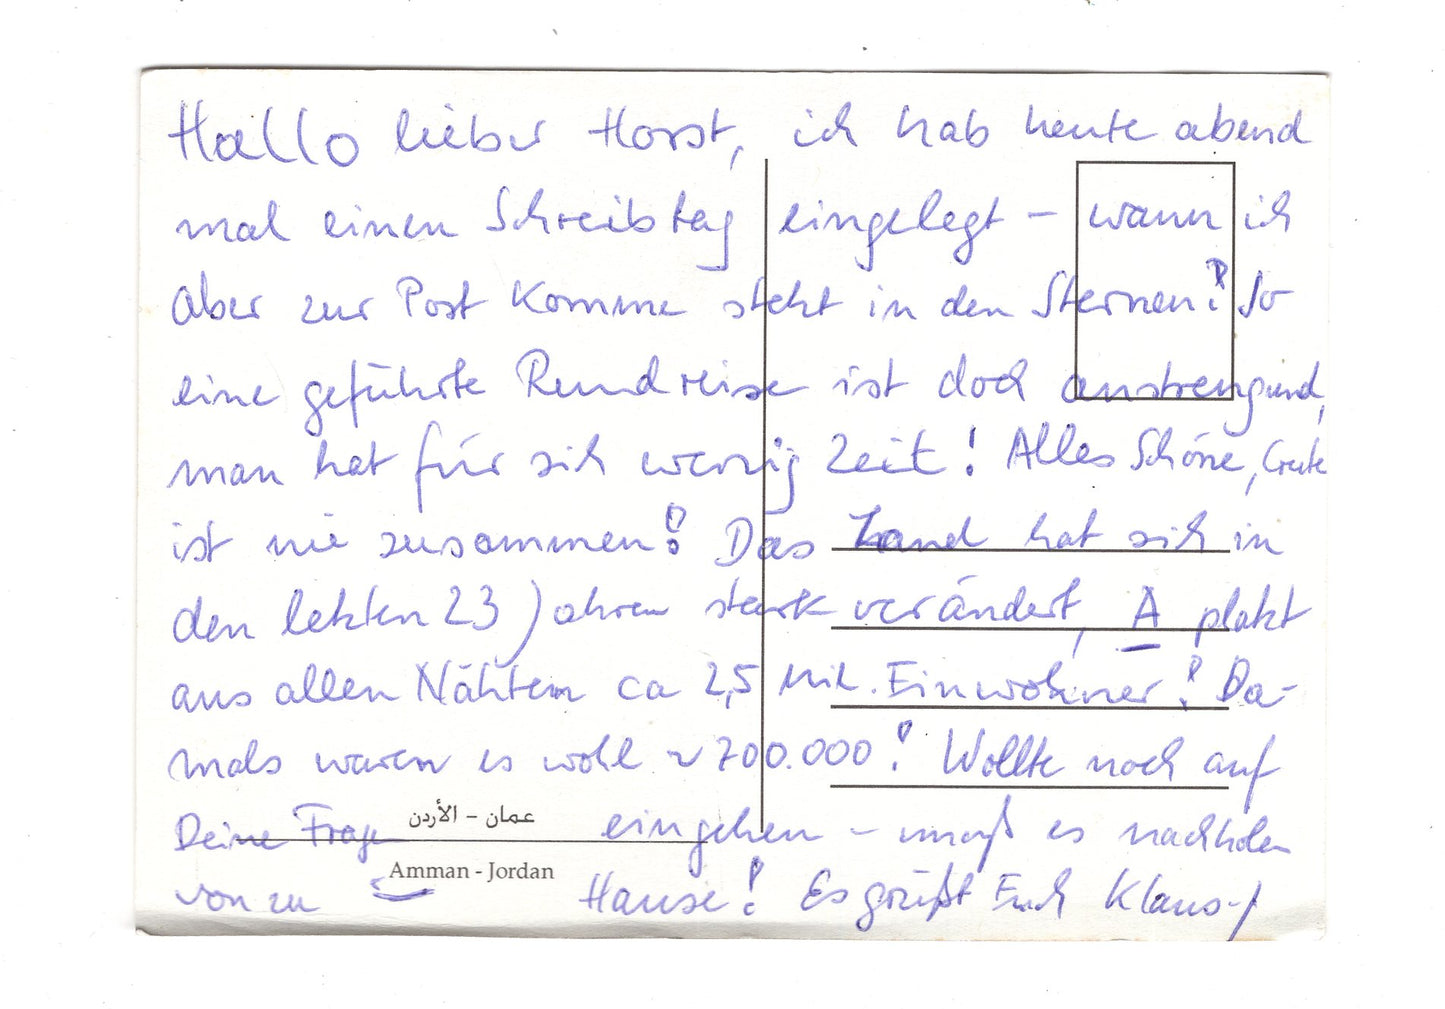 Hallo lieber Horst, ich hab heute abend
mal einen Schreibtag eingelegt – wann ich
aber zur Post komme steht in den Sternen! So
eine geführte Rundreise ist doch anstrengend,
man hat für sich wenig Zeit! Alles Schöne,
ist nie zusammen! Das Land hat sich in
den letzten 23 Jahren stark verändert, A platzt
aus allen Nähten ca 2,5 Mil. Einwohner! Da-
mals waren es wohl ~ 700.000! Wollte noch auf
Deine Fragen eingehen – muß es nachholen
عمان - الأردن
Amman - Jordan
von zu Hause! Es grüßt Euch Klaus-